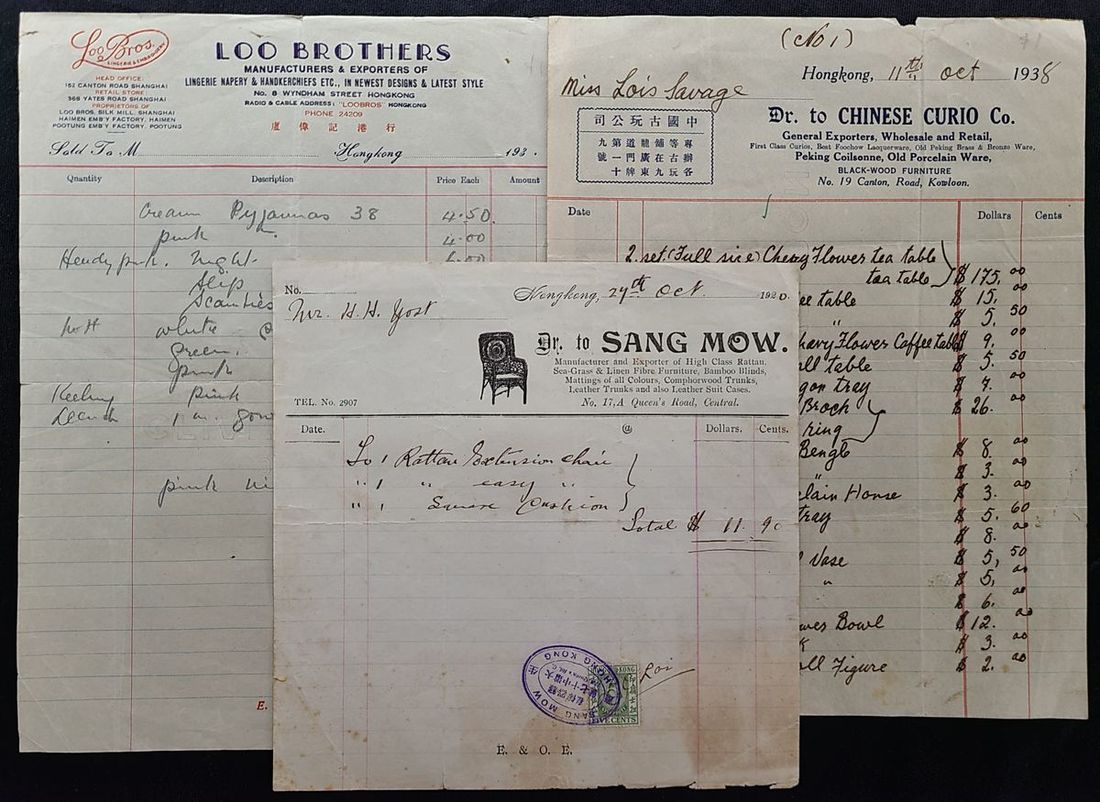 Loo Bros.
LINGERIE & EMBROIDERY
HEAD OFFICE:
152 CANTON ROAD SHANGHAI
RETAIL STORE:
366 YATES ROAD SHANGHAI
PROPRIETORS OF
LOO BROS. SILK MILL, SHANGHAI
HAIMEN EMB'Y FACTORY, HAIMEN
POOTUNG EMB'Y FACTORY, POOTUNG
LOO BROTHERS
MANUFACTURERS & EXPORTERS OF
LINGERIE NAPERY & HANDKERCHIEFS ETC., IN NEWEST DESIGNS & LATEST STYLE
No. 8 WYNDHAM STREET HONGKONG
RADIO & CABLE ADDRESS: "LOOBROS" HONGKONG
PHONE 24209
盧偉記港行
Sold To M Hongkong 193
Quantity Description Price Each Amount
Cream Pyjamas 38 4.50
pink " 4.00
pink. Night.
Slip
Scanties
white
Green.
Pink
pink
1
pink
E.
(No 1)
Hongkong, 11th Oct 1938
Miss Lois Savage
中國古玩公司
專等舖龍道第九
辦古在廣門一號
各玩九東牌十
Dr. to CHINESE CURIO Co.
General Exporters, Wholesale and Retail,
First Class Curios, Best Foochow Lacquerware, Old Peking Brass & Bronze Ware,
Peking Coilsonne, Old Porcelain Ware,
BLACK-WOOD FURNITURE
No. 19 Canton, Road, Kowloon.
Date Dollars Cents
2 set (Full size) Chevy Flower tea table
tea table $ 175.00
table $ 15.00
" $ 5.50
Flower Coffee table $ 9.00
table $ 5.50
tray $ 7.00
Broch $ 26.00
ring
$ 8.00
" $ 3.00
House $ 3.00
tray $ 5.60
$ 8.00
Vase $ 5.50
" $ 5.00
$ 6.00
Bowl $ 12.00
$ 3.00
Figure $ 2.00
No.
Hongkong, 27th Oct. 1920.
Mr. H. H. Yost
Dr. to SANG MOW.
Manufacturer and Exporter of High Class Rattan,
Sea-Grass & Linen Fibre Furniture, Bamboo Blinds,
Mattings of all Colours, Comphorwood Trunks,
Leather Trunks and also Leather Suit Cases.
TEL. No. 2907
No. 17,A Queen's Road, Central.
Date. @ Dollars. Cents.
To 1 Rattan Extension chair
" 1 " easy "
" 1 Square Cushion
Total $ 11.90
SANG MOW
HONG KONG
CENTS
E. & O. E.